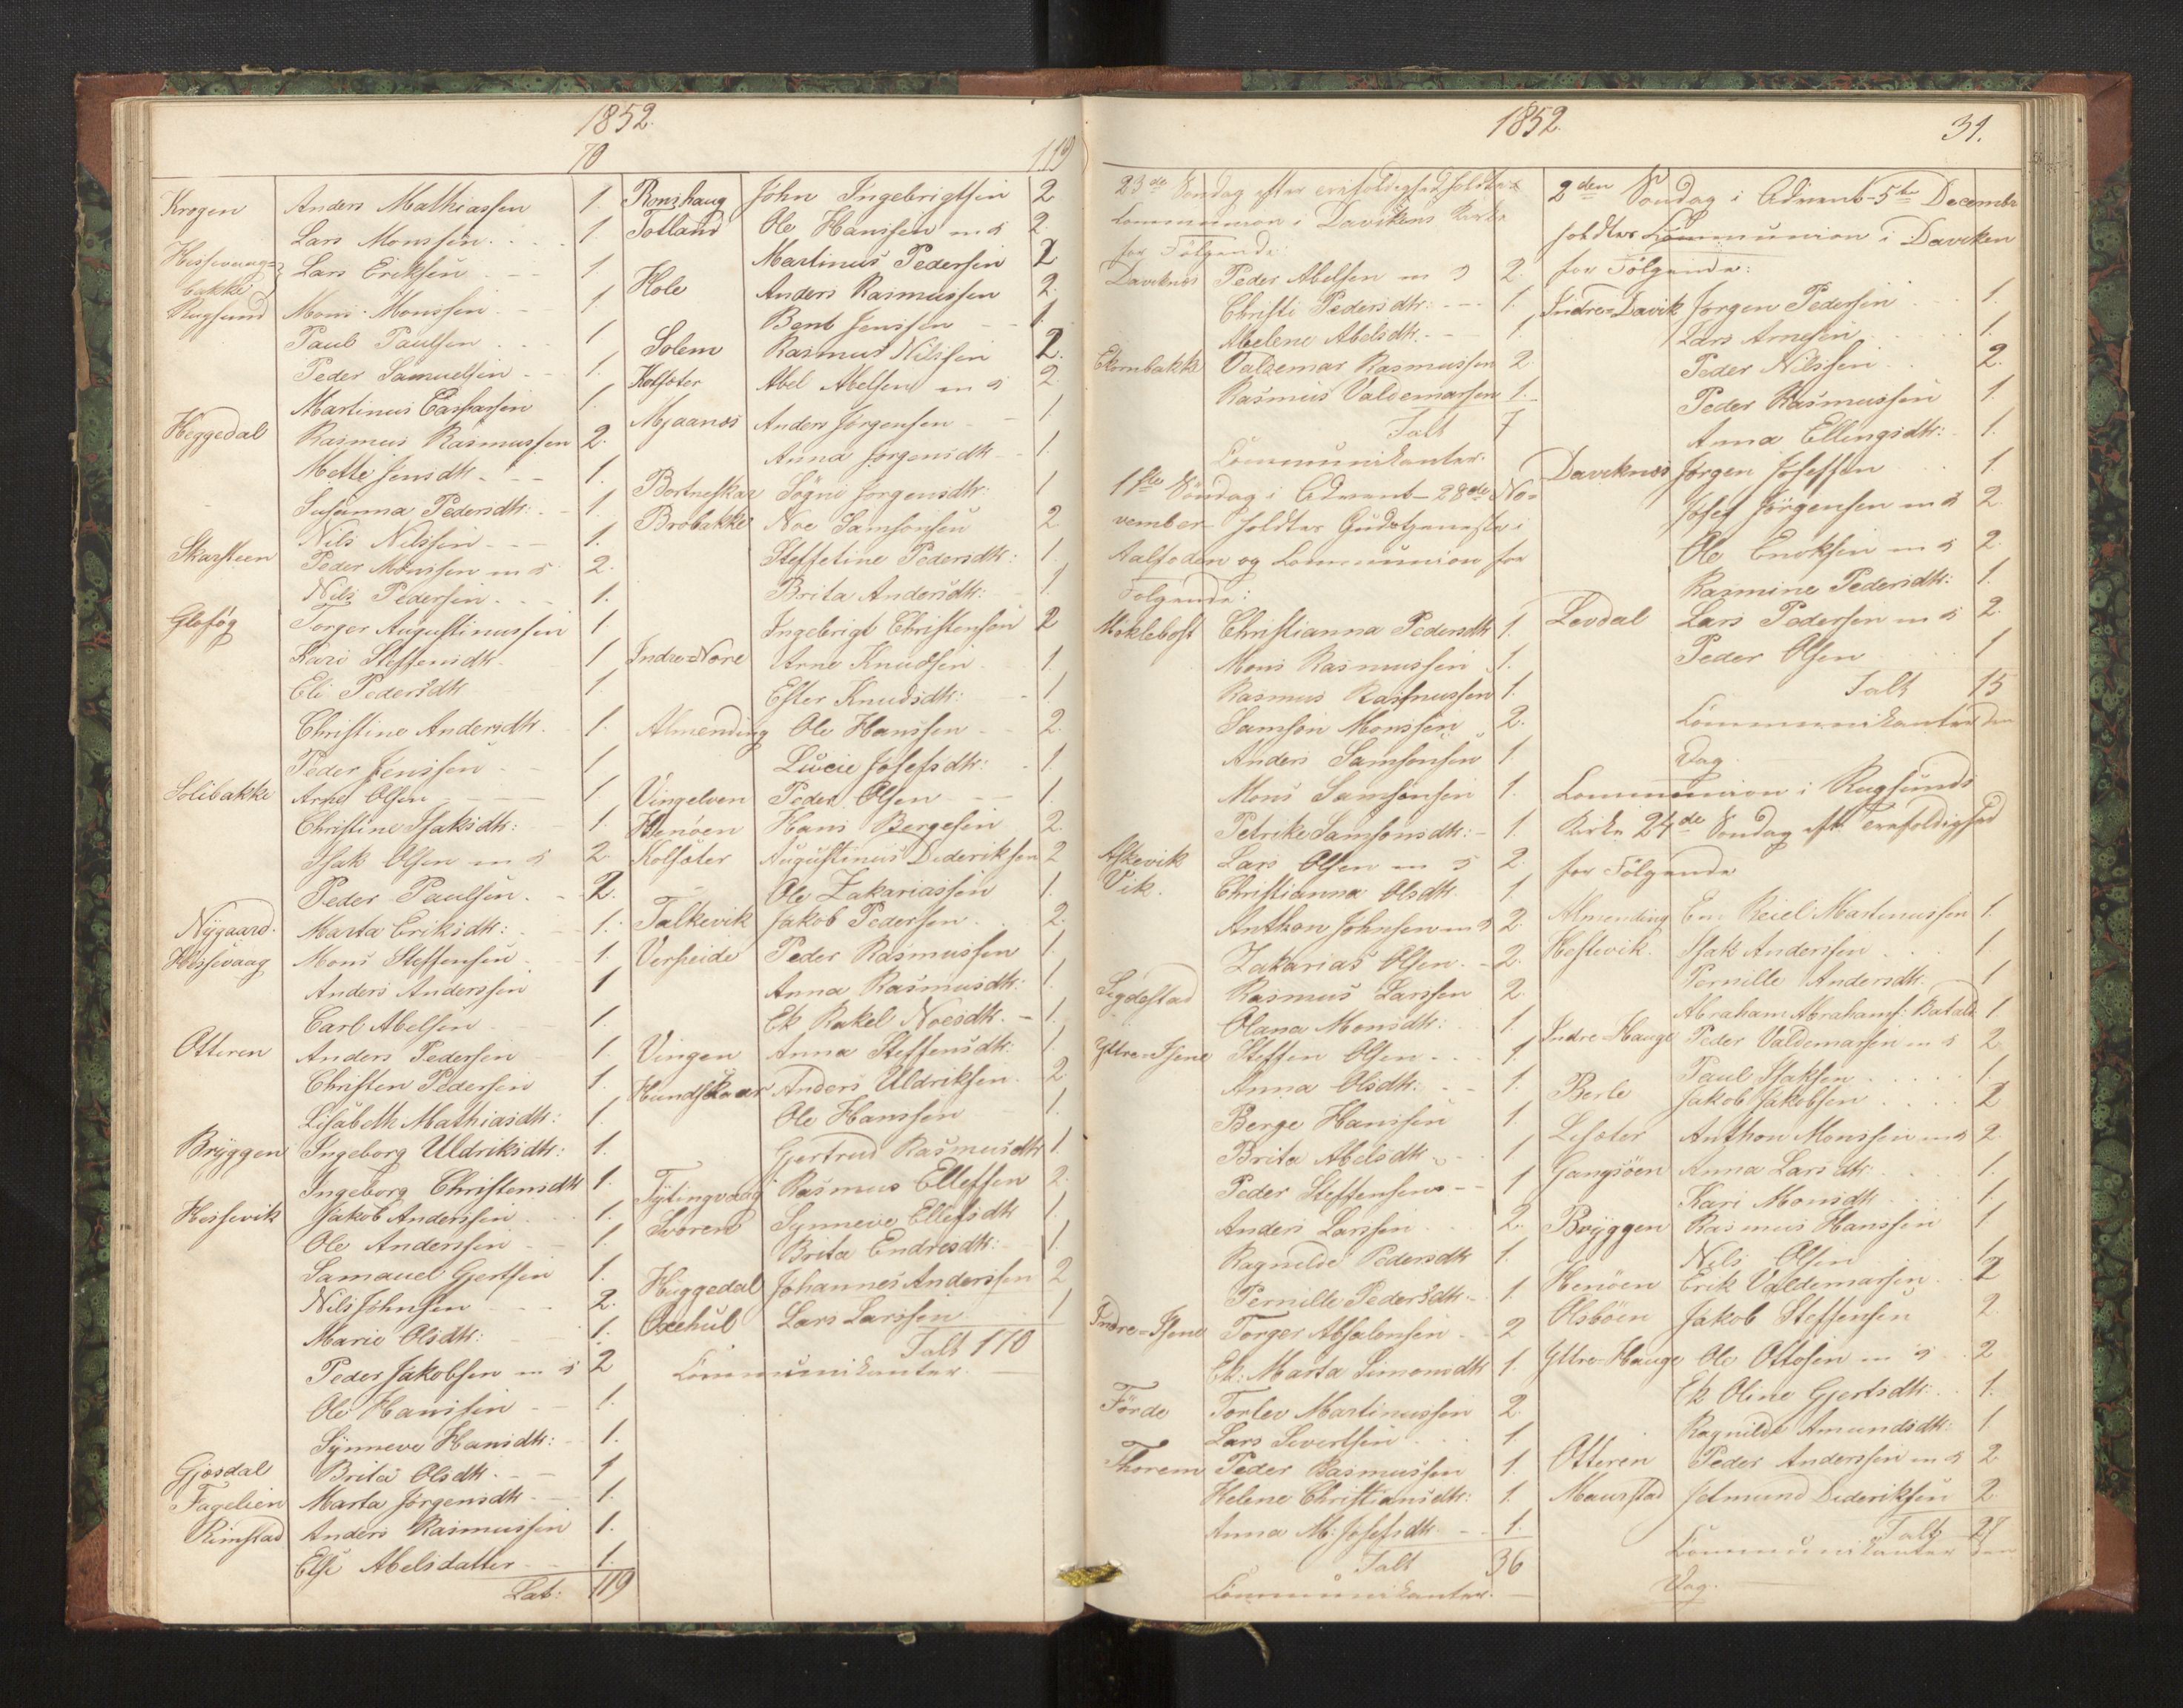 1852.
70
119
Krogen Anders Mathiassen 1.
Lars Monssen 1.
Hessevaag= bakke Lars Eriksen 1.
Rugsund Mons Monssen 1
Paul Paulsen 1
Peder Samuelsen 1.
Martinus Casparsen 1.
Heggedal Rasmus Rasmussen 2.
Mette Jensdtr. 1.
Susanna Pedersdtr: 1.
Nils Nilssen 1.
Skarsteen Peder Monssen m h 2.
Nils Pedersen 1.
Gloføg Torger Augustinussen 1
Kari Steffensdtr. 1
Eli Pedersdtr 1
Christine Andersdtr. 1.
Peder Jenssen 1
Solibakke Arne Olsen 1
Christine Isaksdtr: 1.
Isak Olsen m h 2.
Peder Paulsen. 2.
Nygaard. Marta Eriksdtr: 1.
Hessevaag Mons Steffensen 1.
Anders Anderssen 1
Carl Abelsen 1.
Otteren Anders Pedersen 1.
Christen Pedersen 1.
Lisabeth Mathiasdtr: 1.
Bryggen Ingeborg Uldriksdtr: 1.
Ingeborg Christensdtr 1.
Hessevik Jakob Anderssen 1.
Ole Anderssen 1.
Samauel Gjertsen 1.
Nils Johnsen 2.
Marie Olsdtr: 1.
Peder Jakobsen m h 2
Ole Hanssen 1.
Synneve Hansdtr: 1.
Gjosdal Brita Olsdtr. 1
Fagelien Marta Jørgensdtr 1.
Rimstad Anders Rasmussen 1.
Else Abelsdatter 1.
Lat: 119
Ronshaug John Ingebrigtsen 2
Totland Ole Hanssen m h 2.
Martinus Pedersen 2
Hole Anders Rasmussen 2.
Bent Jenssen 1
Solem Rasmus Nilssen 2.
Kolsæter Abel Abelsen m h 2
Myaanes Anders Jørgensen 1.
Anna Jørgensdtr. 1.
Bortneskar Søgni Jørgensdtr: 1
Brobakke Noe Samsonsen 2
Steffetine Pedersdtr: 1.
Brita Andersdtr: 1
Ingebrigt Christensøn 2
Indre=Nore Arne Knudsen 1.
Ester Knudsdtr: 1
Almending Ole Hanssen 2.
Lucie Josefsdtr: 1.
Vingelven Peder Olsen 1.
Henøen Hans Bergesen 2.
Kolsæter Augustinus Dideriksen 2
Ole Zakariassen 1.
Talkevik Jakob Pedersen 2.
Verheide Peder Rasmussen 1.
Anna Rasmusdtr: 1.
Ek Rakel Noesdtr. 1.
Vingen Anna Steffensdtr: 1.
Hundskaar Anders Uldriksen. 2.
Ole Hanssen 1.
Gjertrud Rasmusdtr 1.
Tytingvaag Rasmus Ellefsen 2.
Svoren Synneve Ellefsdtr 1.
Brita Endresdtr: 1.
Huggedal Johannes Anderssen 2
Oxehul Lars Larssen 1
Talt 170
Communikanter.
1852. 31.
23de Søndag efter trefoldighed holdtes
Communion i Davikens Kirke
for Følgende:
Daviknes Peder Abelsen m h 2.
Christi Pedersdtr: 1.
Abelene Abelsdtr. 1.
Valdemar Rasmussen 2.
Rasmus Valdemarsen 1.
Talt 7
Communikanter.
1ste Søndag i Advent 28de No=
vember holdtes Gudstjeneste i
Aalfoden og Communion for
Følgende:
Myklebost Christianna Pedersdtr 1.
Mons Rasmussen 1.
Rasmus Rasmussen 1.
Samson Monssen 2.
Anders Samsonsen 1
Mons Samsonsen 1.
Petrike Samsonsdtr: 1.
Askevik Lars Olsen m h 2.
Vik. Christianna Olsdtr. 1
Anthon Johnsen m h 2
Zakarias Olsen. 2.
Sigdestad Rasmus Larssen 2.
Olana Monsdtr: 1.
Ytre=Isene Steffen Olsen 1
Anna Olsdtr. 1.
Berge Hanssen 1.
Brita Abelsdtr. 1
Peder Steffensen 1
Anders Larssen 2.
Ragnilde Pedersdtr 1.
Pernille Pedersdtr 1
Indre=Isene Torger Absalonsen 2
Ek: Marta Simonsdtr 1.
Førde Torlev Martinussen 2.
Lars Sivertsen 1
Thorem Peder Rasmussen 1.
Helene Christiansdtr: 1.
Anna M: Josefsdtr. 1.
Talt 36
Communikanter.
2den Søndag i Advent 5te December
holdtes Communion i Daviken
for Følgende:
Indre=Davik Jørgen Pedersen 1.
Lars Arnesen 1.
Peder Nilssen 2.
Peder Rasmussen 1
Anna Ellingsdtr: 1.
Daviknes Jørgen Joseffsen 1
Josef Jørgensen m h 2
Ole Enoksen m h 2
Rasmine Pedersdtr: 1.
Levdal Lars Pedersen m h 2
Peder Olsen 1
Talt 15
Communikanter den
Dag.
Communion i Rugsunds
Kirke 24de Søndag eft. Trefoldighed
for Følgende
Almending En: Reiel Martinussen 1.
Hestevik. Isak Anderssen 1
Pernille Andersdtr. 1
Abraham Abrahams: Batald 1
Indre=Hauge Peder Valdemarsen m h 2
Paul Isaksen 1.
Berle Jakob Jakobsen 2
Lesæter Anthon Monssen m h 2.
Gangsøen Anna Larsdtr. 1.
Kari Monsdtr. 1.
Bryggen Rasmus Hanssen 1
Nils Olsen 1
Henøen Erik Valdemarsen 2
Olsbøen Jakob Steffensen 2
Yttre=Hauge Ole Ottosen m h 2
Ek Oline Gjertsdtr. 1.
Ragnilde Amundsdtr. 1
Otteren Peder Anderssen m h 2
Maurstad Jetmund Dideriksen 2
Talt 27
Communikanter den
Dag.